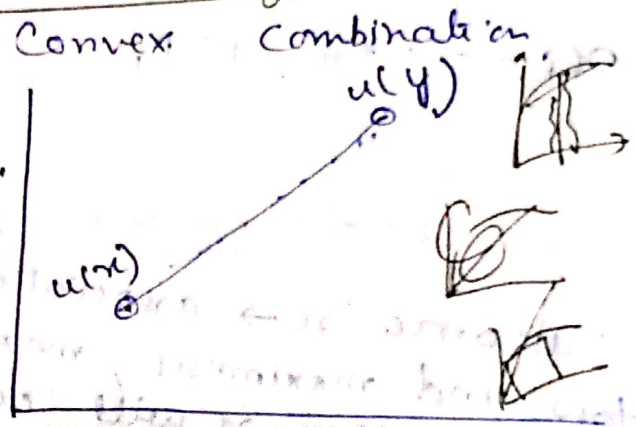 Convex. Combination
u(y)
u(x)